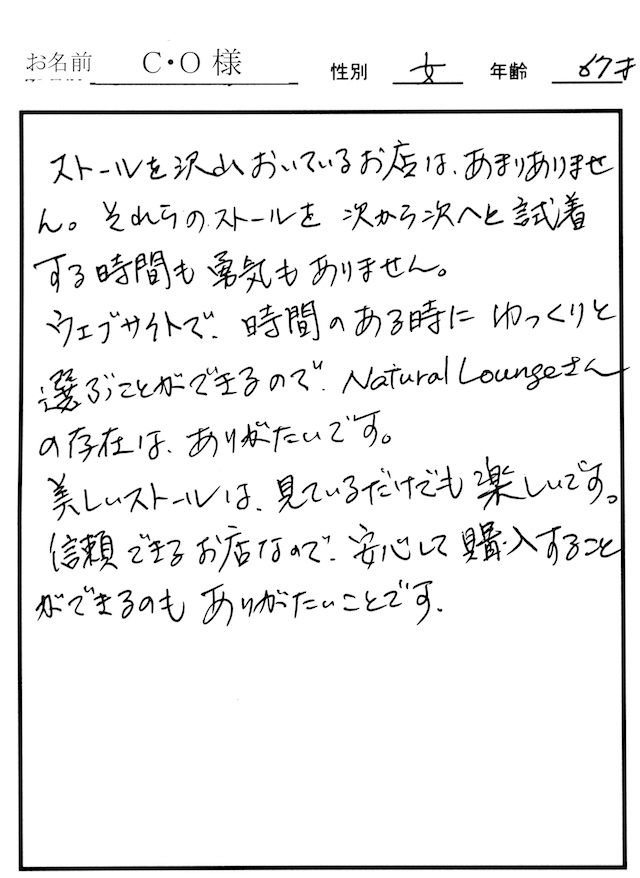 お名前 C・O 様 性別 女 年齢 67才
ストールを沢山おいているお店は、あまりありませ
ん。それらのストールを 次から次へと試着
する時間も勇気もありません。
ウェブサイトで、時間のある時に ゆっくりと
選ぶことができるので、Natural Loungeさん
の存在は、ありがたいです。
美しいストールは、見ているだけでも楽しいです。
信頼できるお店なので、安心して購入すること
ができるのもありがたいことです.